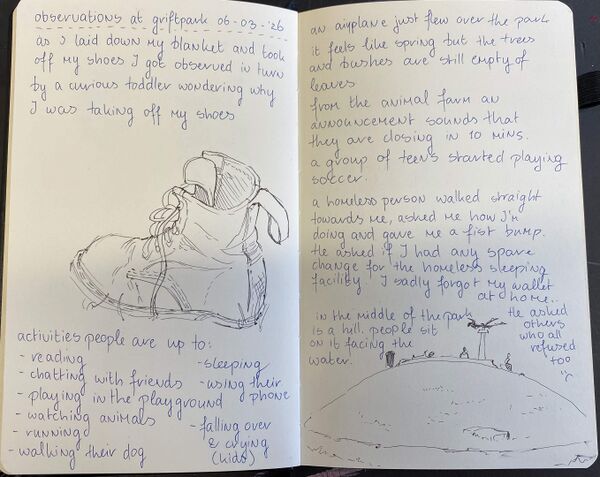 observations at griftpark 06-03-'26
as I laid down my blanket and took
off my shoes I got observed in turn
by a curious toddler wondering why
I was taking off my shoes
activities people are up to:
- reading
- chatting with friends
- playing in the playground
- watching animals
- running
- walking their dog
- sleeping
- using their
phone
- falling over
& crying
(kids)
an airplane just flew over the park
it feels like spring but the trees
and bushes are still empty of
leaves
from the animal farm an
announcement sounds that
they are closing in 10 mins.
a group of teens started playing
soccer.
a homeless person walked straight
towards me, asked me how I'm
doing and gave me a fist bump.
He asked if I had any spare
change for the homeless sleeping
facility. I sadly forgot my wallet
at home..
He asked
others
who all
refused
too
:(
in the middle of the park
is a hill. people sit
on it facing the
water.